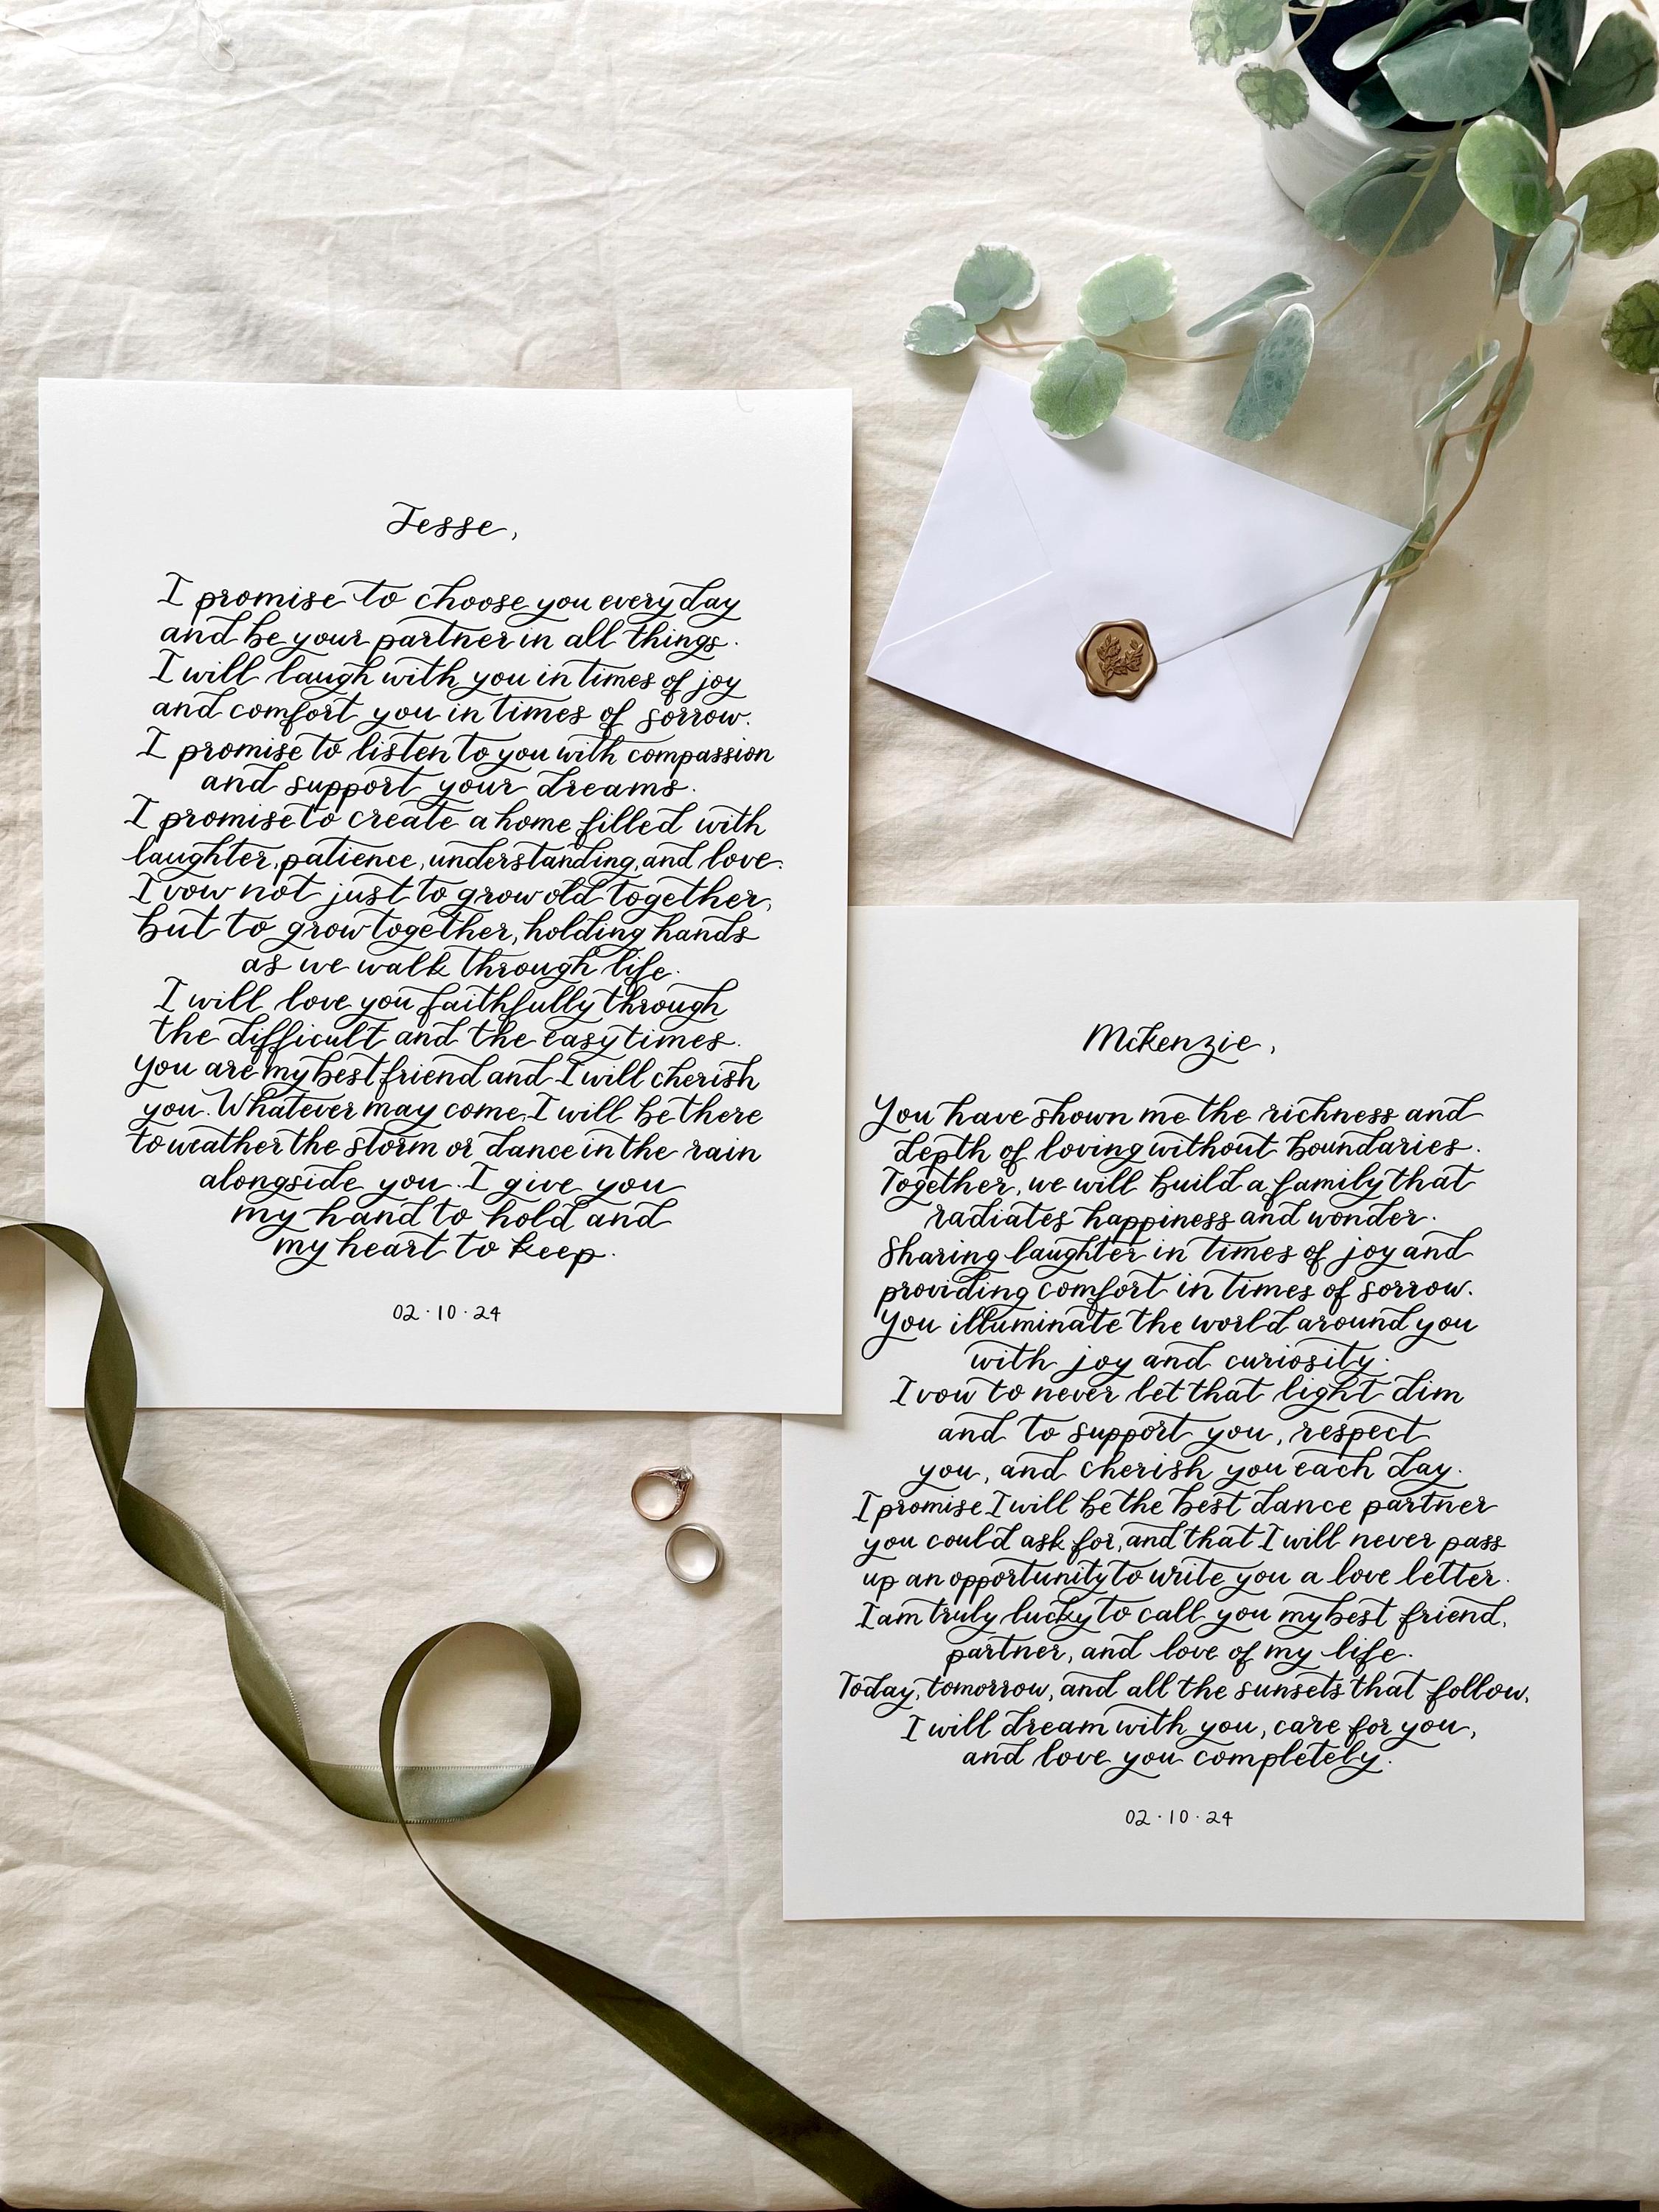 Jesse,
I promise to choose you every day
and be your partner in all things.
I will laugh with you in times of joy
and comfort you in times of sorrow.
I promise to listen to you with compassion
and support your dreams.
I promise to create a home filled with
laughter, patience, understanding, and love.
I vow not just to grow old together,
but to grow together, holding hands
as we walk through life.
I will love you faithfully through
the difficult and the easy times.
You are my best friend and I will cherish
you. Whatever may come, I will be there
to weather the storm or dance in the rain
alongside you. I give you
my hand to hold and
my heart to keep.
02·10·24
McKenzie,
You have shown me the richness and
depth of loving without boundaries.
Together, we will build a family that
radiates happiness and wonder.
Sharing laughter in times of joy and
providing comfort in times of sorrow.
You illuminate the world around you
with joy and curiosity.
I vow to never let that light dim
and to support you, respect
you, and cherish you each day.
I promise I will be the best dance partner
you could ask for, and that I will never pass
up an opportunity to write you a love letter.
I am truly lucky to call you my best friend,
partner, and love of my life.
Today, tomorrow, and all the sunsets that follow,
I will dream with you, care for you,
and love you completely.
02·10·24